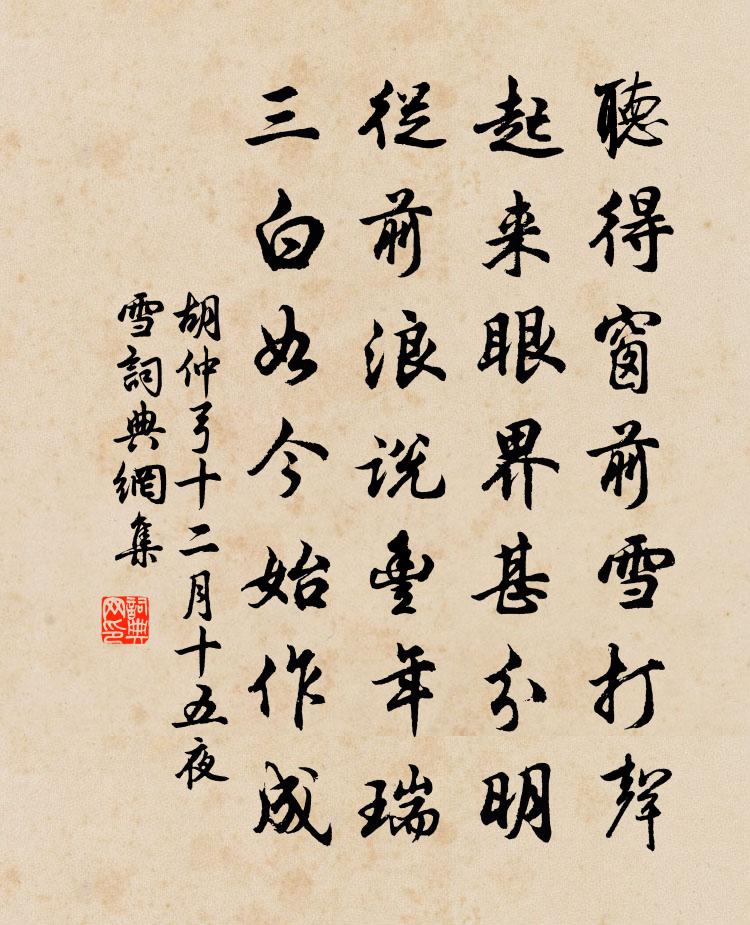 聽得窗前雪打聲
起来眼界甚分明
從前浪説豐年瑞
三白如今始作成
胡仲弓十二月十五夜
雪詞典網集
詞典網印